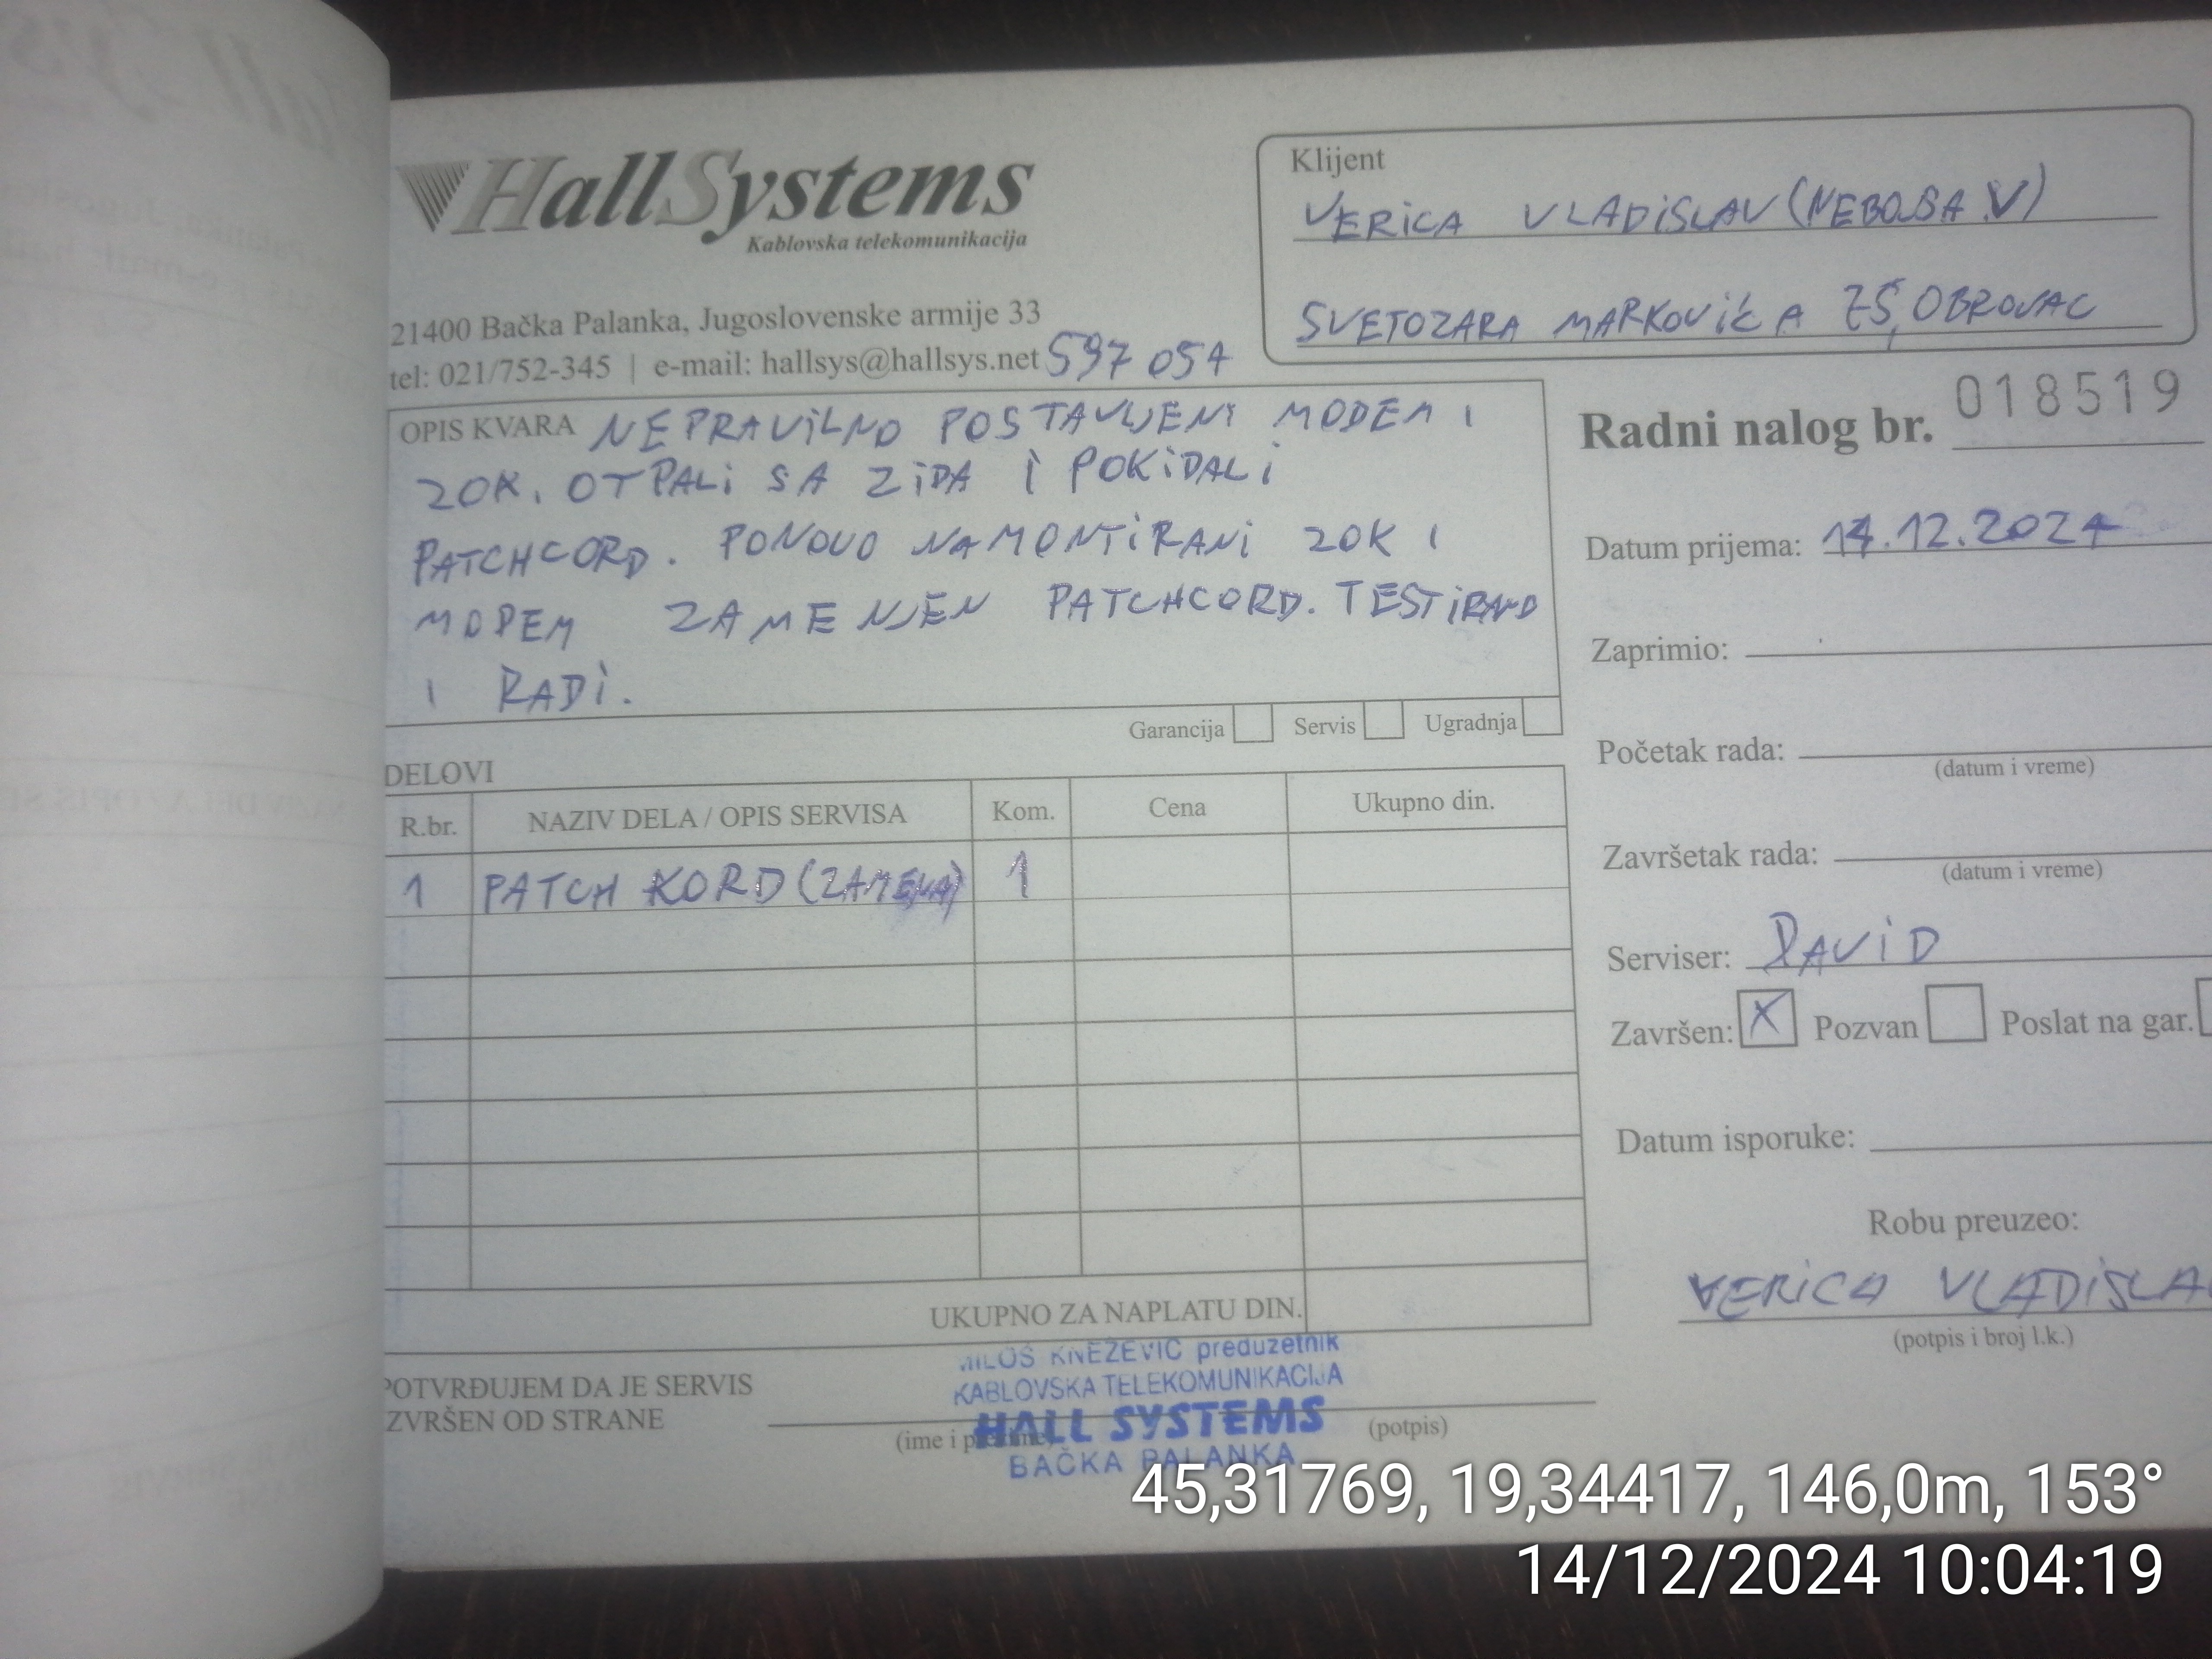 HallSystems
Kablovska telekomunikacija
21400 Bačka Palanka, Jugoslovenske armije 33
tel: 021/752-345 | e-mail: hallsys@hallsys.net
597 054
Klijent
VERICA VLADISLAV (NEBOJŠA V)
SVETOZARA MARKOVIĆA OBROVAC
OPIS KVARA NEPRAVILNO POSTAVLJENI MODEM I
ZOK. OTPALI SA ZIDA I POKIDALI
PATCHCORD. PONOVO NAMONTIRANI ZOK I
MODEM ZAMENJEN PATCHCORD. TESTIRANO
I RADI.
Garancija Servis Ugradnja
Radni nalog br. 018519
Datum prijema: 14.12.2024
Zaprimio:
Početak rada:
(datum i vreme)
Završetak rada:
(datum i vreme)
Serviser: DAVID
Završen: X Pozvan Poslat na gar.
Datum isporuke:
Robu preuzeo:
VERICA VLADISLA
(potpis i broj l.k.)
DELOVI
R.br. NAZIV DELA / OPIS SERVISA Kom. Cena Ukupno din.
1 PATCH KORD (ZAMENA) 1
UKUPNO ZA NAPLATU DIN.
POTVRĐUJEM DA JE SERVIS
IZVRŠEN OD STRANE
(ime i prezime)
(potpis)
MILOŠ KNEŽEVIĆ preduzetnik
KABLOVSKA TELEKOMUNIKACIJA
HALL SYSTEMS
BAČKA PALANKA
45,31769, 19,34417, 146,0m, 153°
14/12/2024 10:04:19